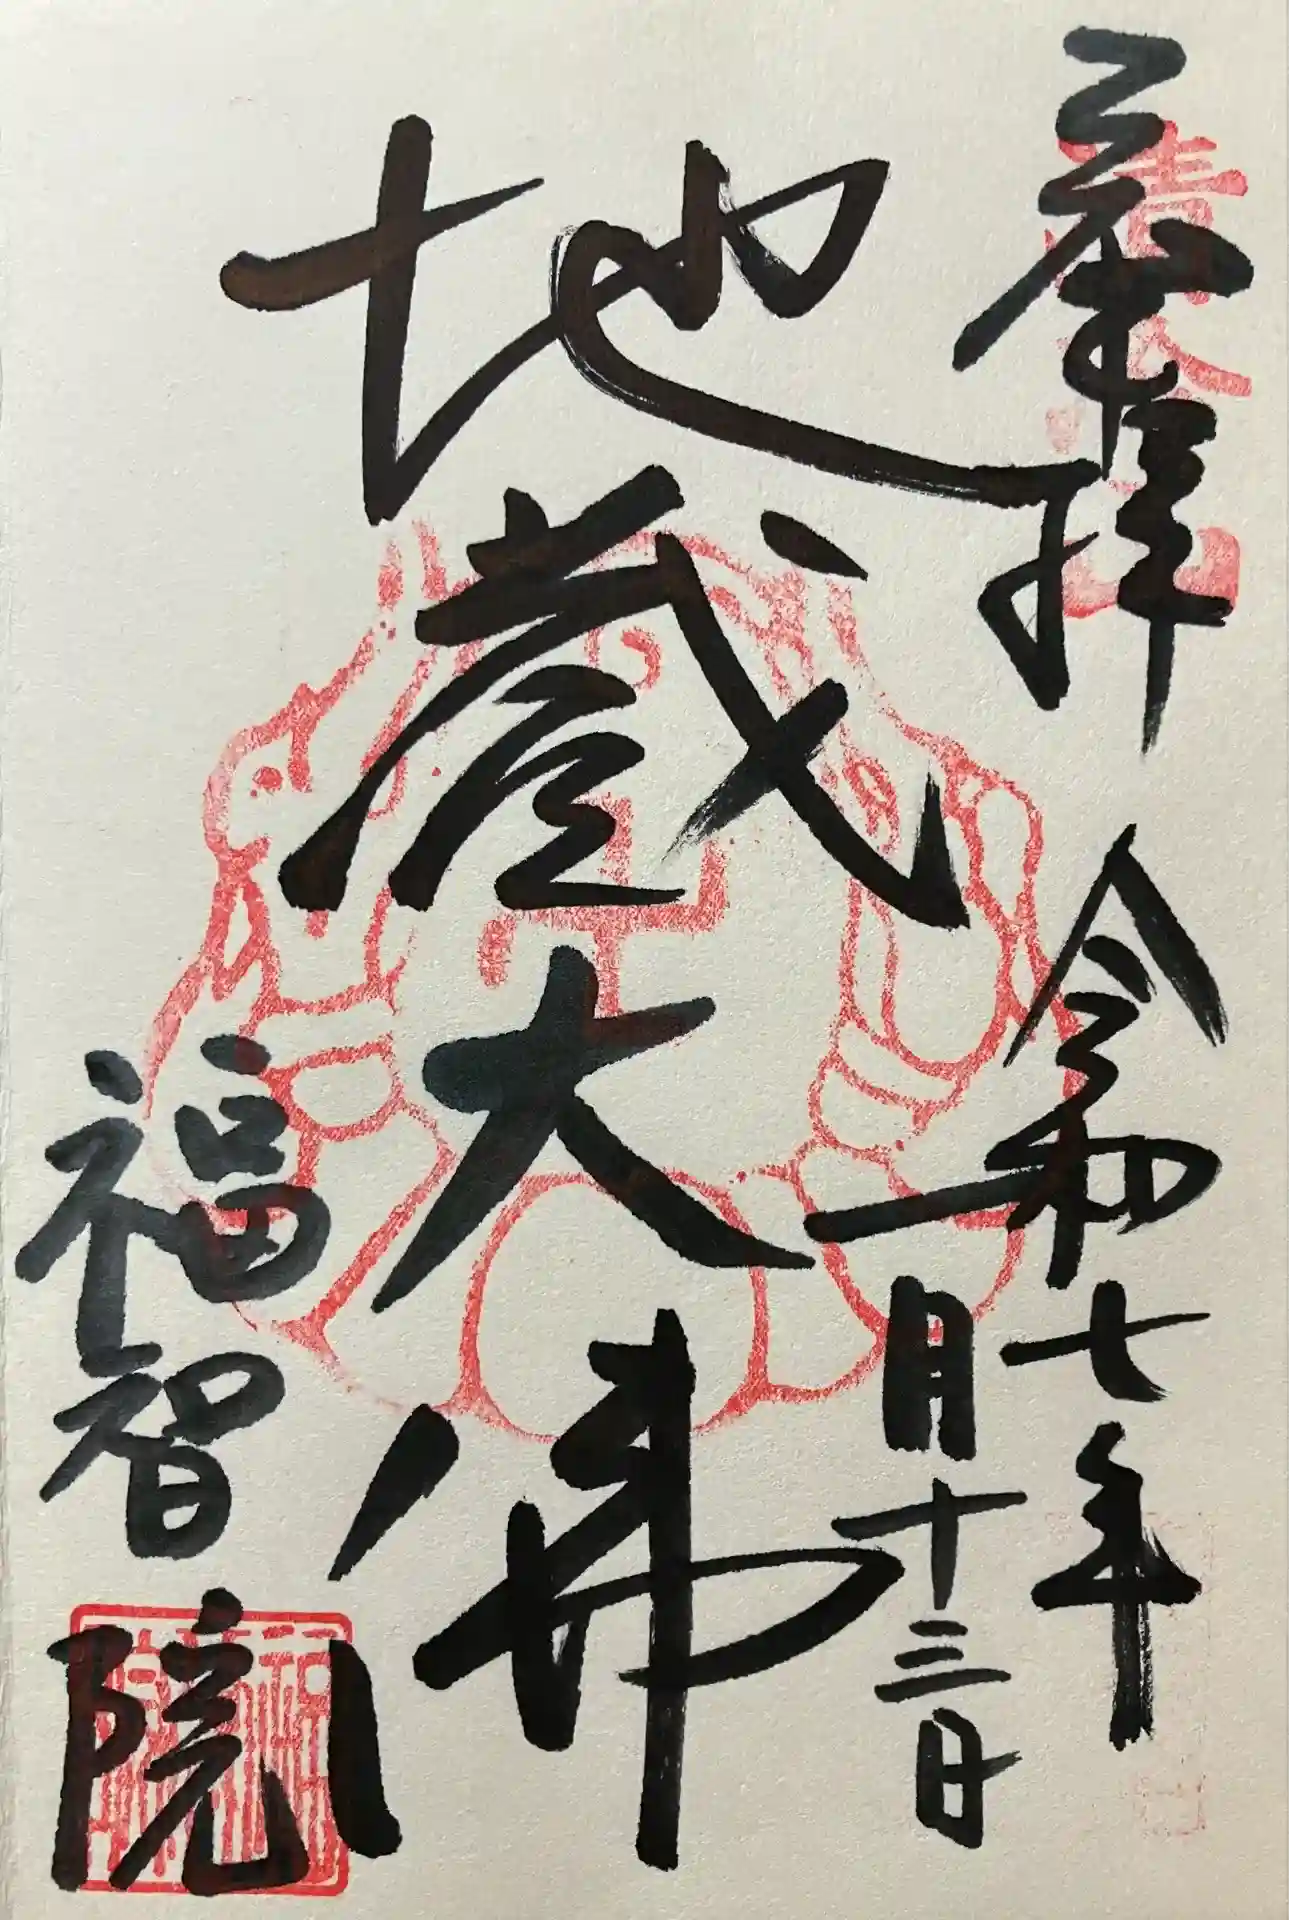 奉拝 令和七年
一月十三日
地蔵大佛
福智院